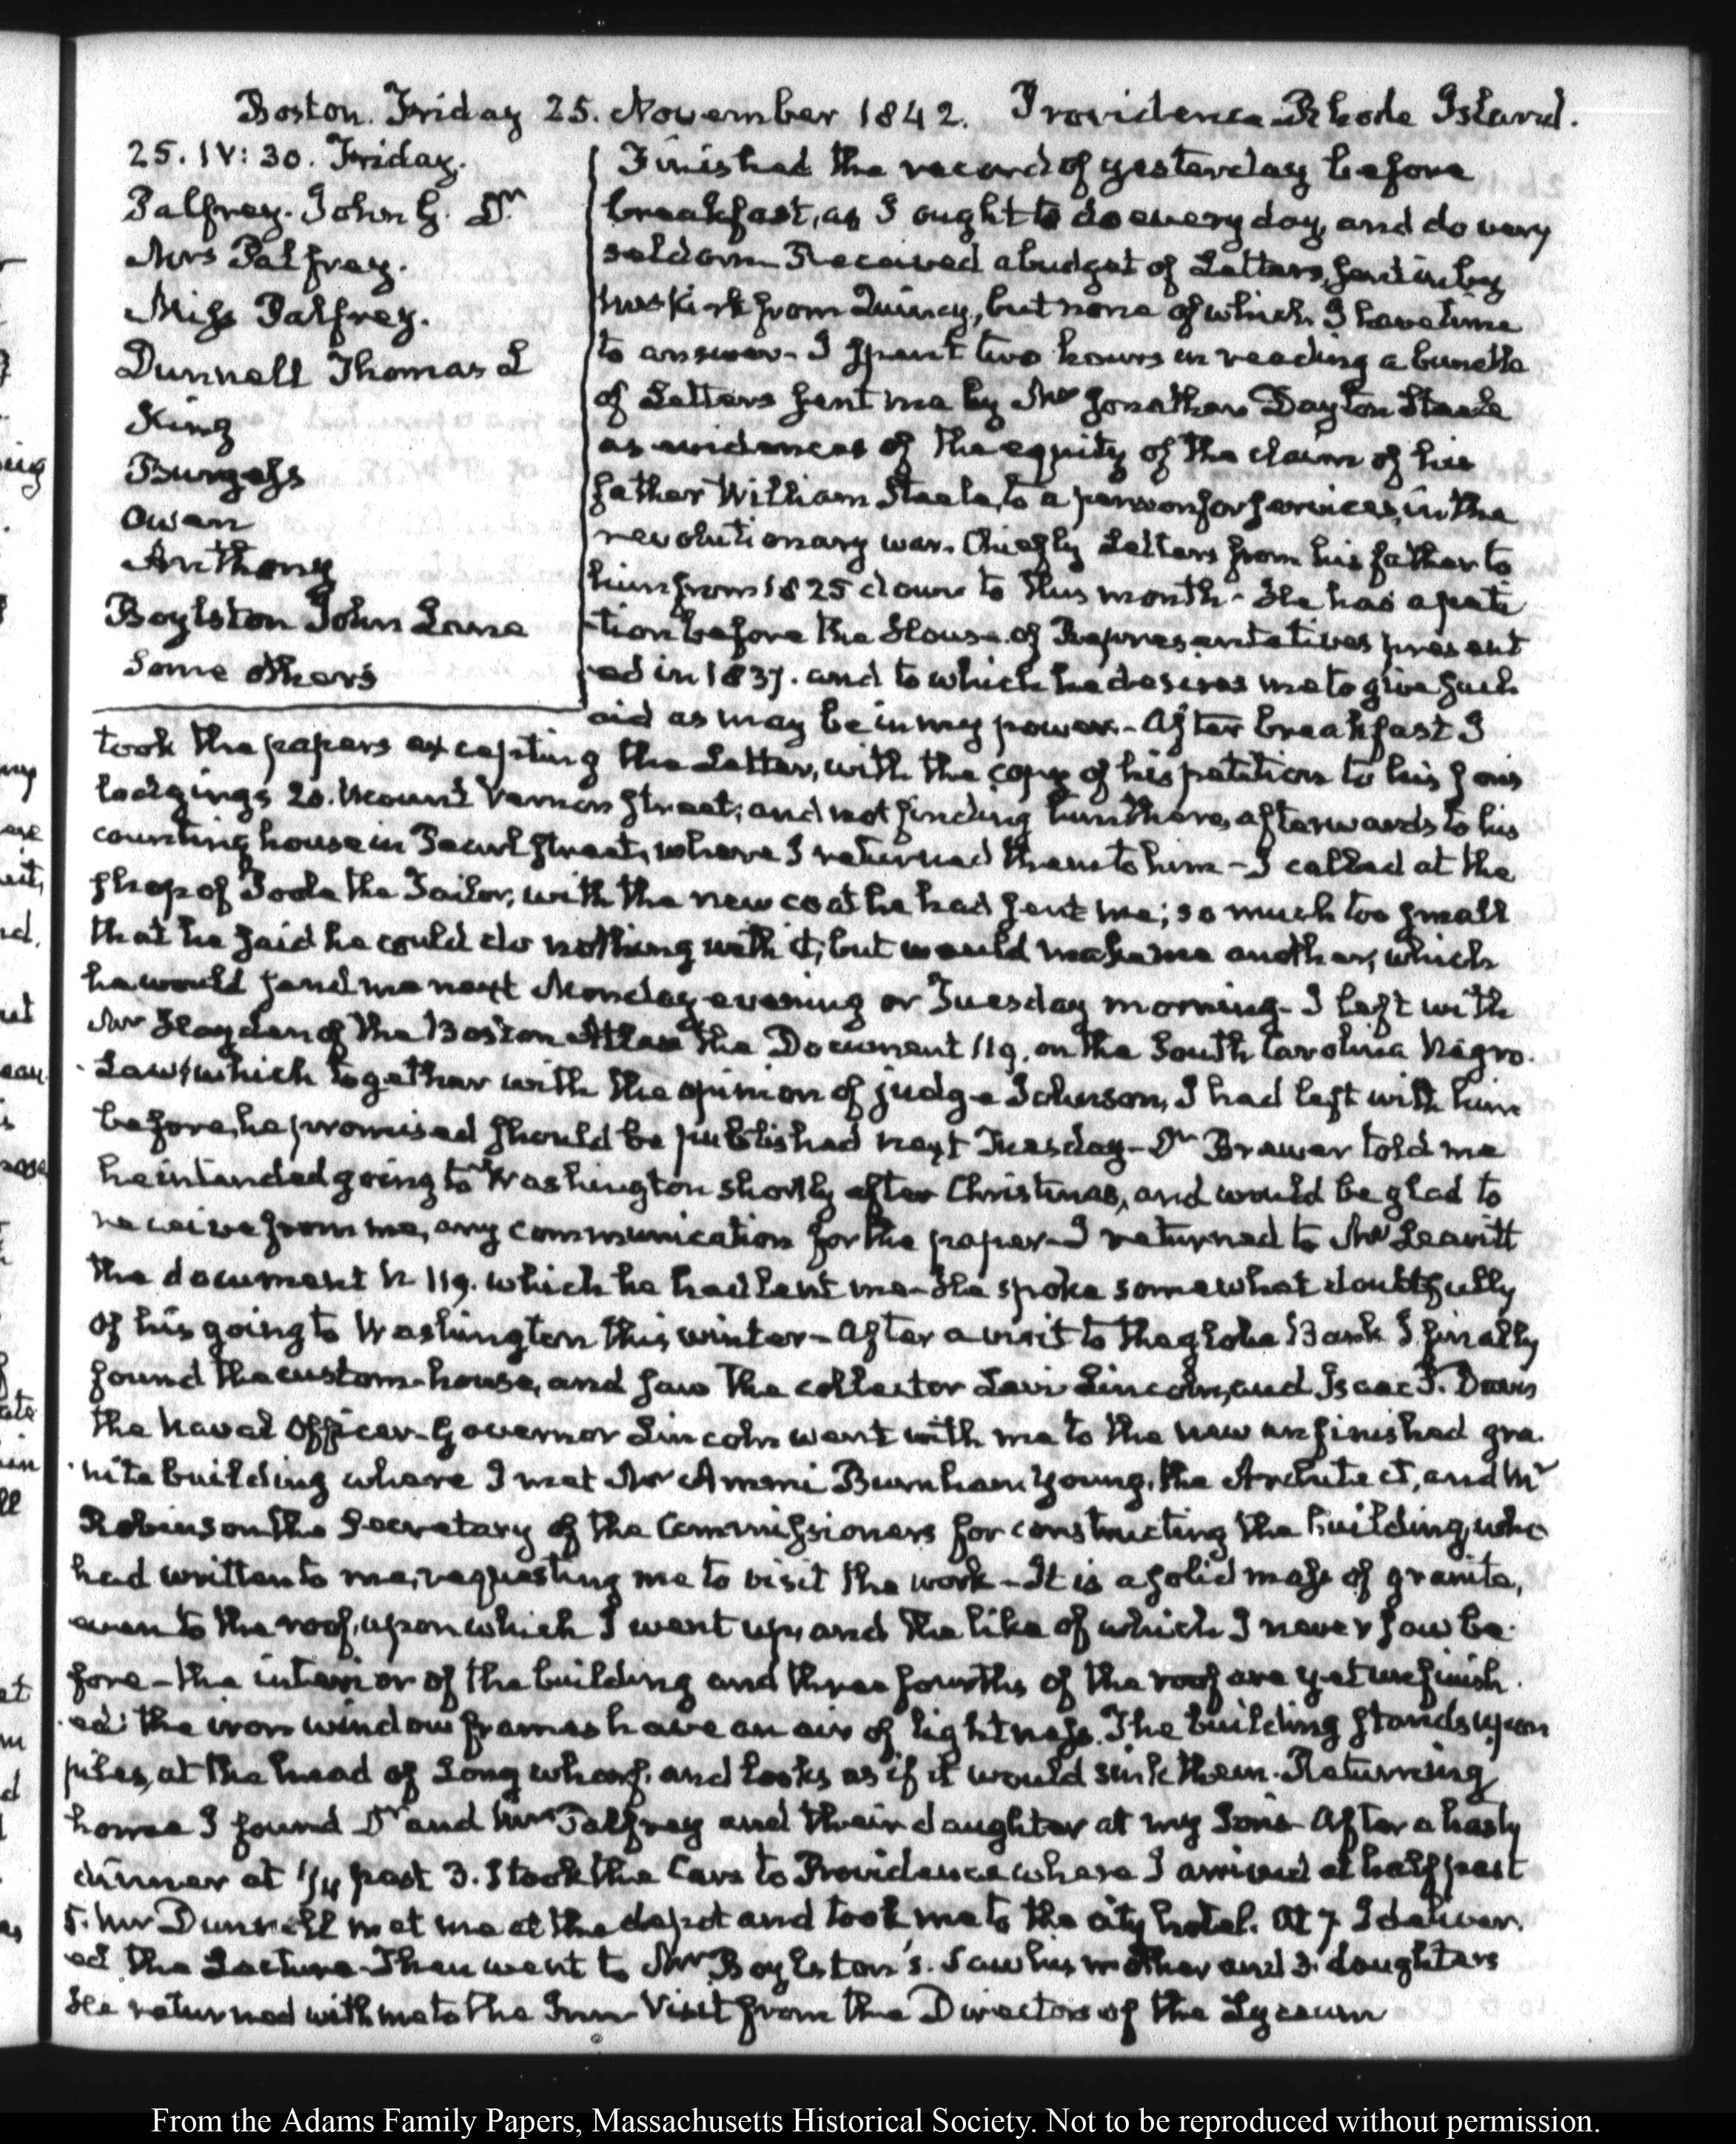 Boston. Friday 25. November 1842. Providence Rhode Island.
25. IV: 30. Friday.
Palfrey. John G. Dr
Mrs Palfrey.
Miss Palfrey.
Dunnell Thomas L
King
Burgess
Owen
Anthony
Boylston John Lane
Some others
Finished the record of yesterday before
breakfast, as I ought to do every day, and do very
seldom. Received a budget of Letters, sent in by
Mrs Kirk from Quincy, but none of which I have time
to answer. I spent two hours in reading a bundle
of Letters sent me by Mr Jonathan Dayton Steele
as evidences of the equity of the claim of his
father William Steele, to a pension for services, in the
revolutionary war. Chiefly Letters from his father to
him from 1825 down to this month. He has a peti
tion before the House of Representatives present
ed in 1837. and to which he desires me to give such
aid as may be in my power. After breakfast I
took the papers excepting the Letter, with the copy of his petition to his son's
lodgings 20. Mount Vernon Street, and not finding him there, afterwards to his
counting house in Pearl Street, where I returned them to him - I called at the
shop of Poole the Tailor, with the new coat he had sent me; so much too small
that he said he could do nothing with it, but would make me another, which
he would send me next Monday evening or Tuesday morning - I left with
Mr Hayden of the Boston Atlas the Document 119. on the South Carolina Negro
Law, which together with the opinion of judge Johnson, I had left with him
before, he promised should be published next Tuesday - Dr Brewer told me
he intended going to Washington shortly after Christmas, and would be glad to
receive from me, any communication for the paper - I returned to Mr Leavitt
the document N 119. which he had lent me - He spoke somewhat doubtfully
of his going to Washington this winter - After a visit to the globe Bank I finally
found the custom-house, and saw the collector Levi Lincoln, and Isaac P. Davis
the Naval Officer - Governor Lincoln went with me to the new unfinished gra
nite building where I met Mr Ammi Burnham Young, the Architect, and Mr
Robinson the Secretary of the Commissioners for constructing the building, who
had written to me, requesting me to visit the work - It is a solid mass of granite,
even to the roof, upon which I went up, and the like of which I never saw be
fore - the interior of the building and three fourths of the roof are yet unfinish
ed: the iron window frames have an air of lightness. The building stands upon
piles, at the head of Long wharf, and looks as if it would sink them. Returning
home I found Dr and Mrs Palfrey and their daughter at my Son's After a hasty
dinner at 1/4 past 3. I took the Cars to Providence where I arrived at half past
5. Mr Dunnell met me at the depot and took me to the city hotel. At 7 I deliver
ed the Lecture. Then went to Mr Boylston's. Saw his mother and 3 daughters
He returned with me to the Inn Visit from the Directors of the Lyceum
From the Adams Family Papers, Massachusetts Historical Society. Not to be reproduced without permission.